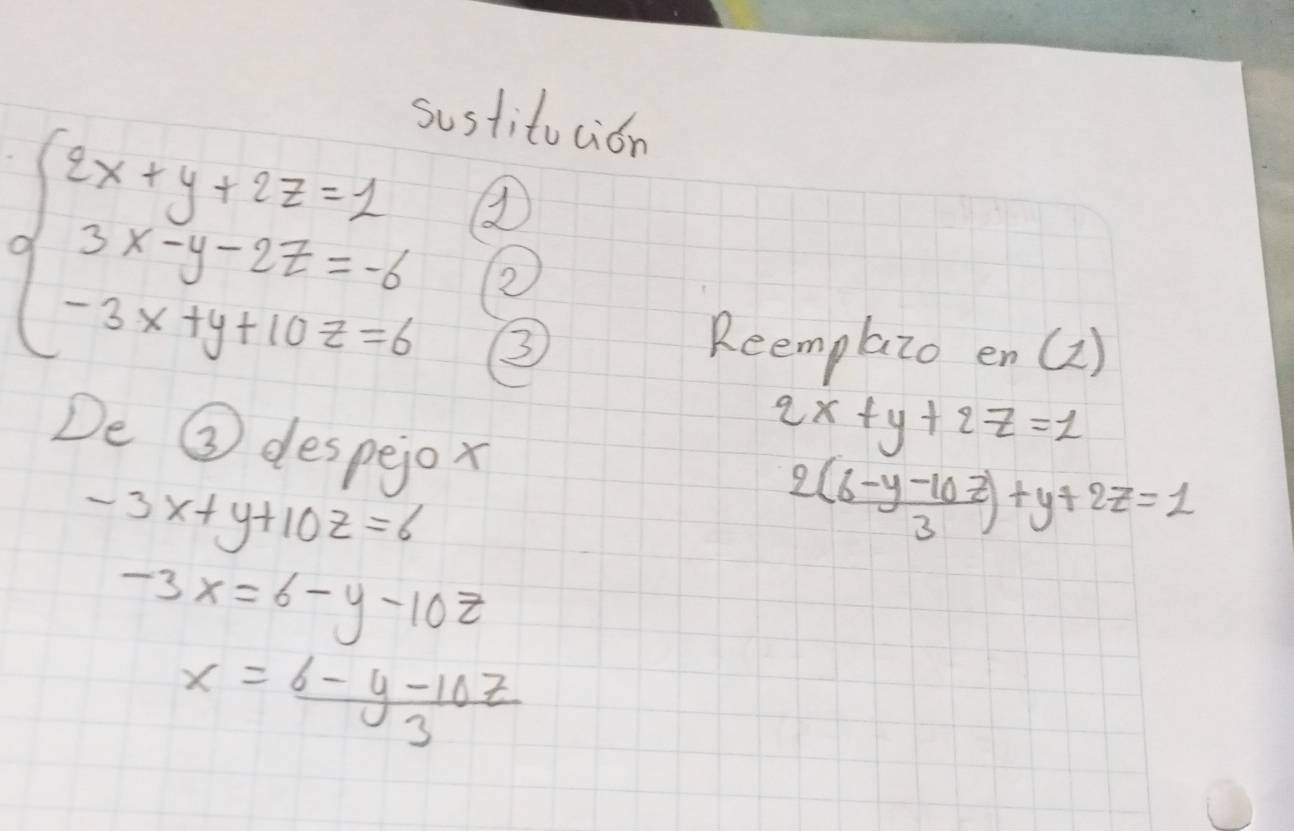 sustitución
2x + y + 2z = 1 ①
3x - y - 2z = -6 ②
-3x + y + 10z = 6 ③
De ③ despejo x
-3x + y + 10z = 6
-3x = 6 - y - 10z
x = (6 - y - 10z)/3
Reemplazo en (1)
2x + y + 2z = 1
2(6 - y - 10z)/3 + y + 2z = 1